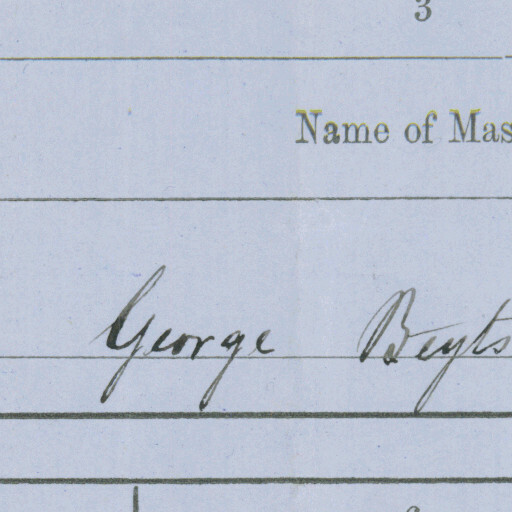 3
Name of Mas
George Beyts